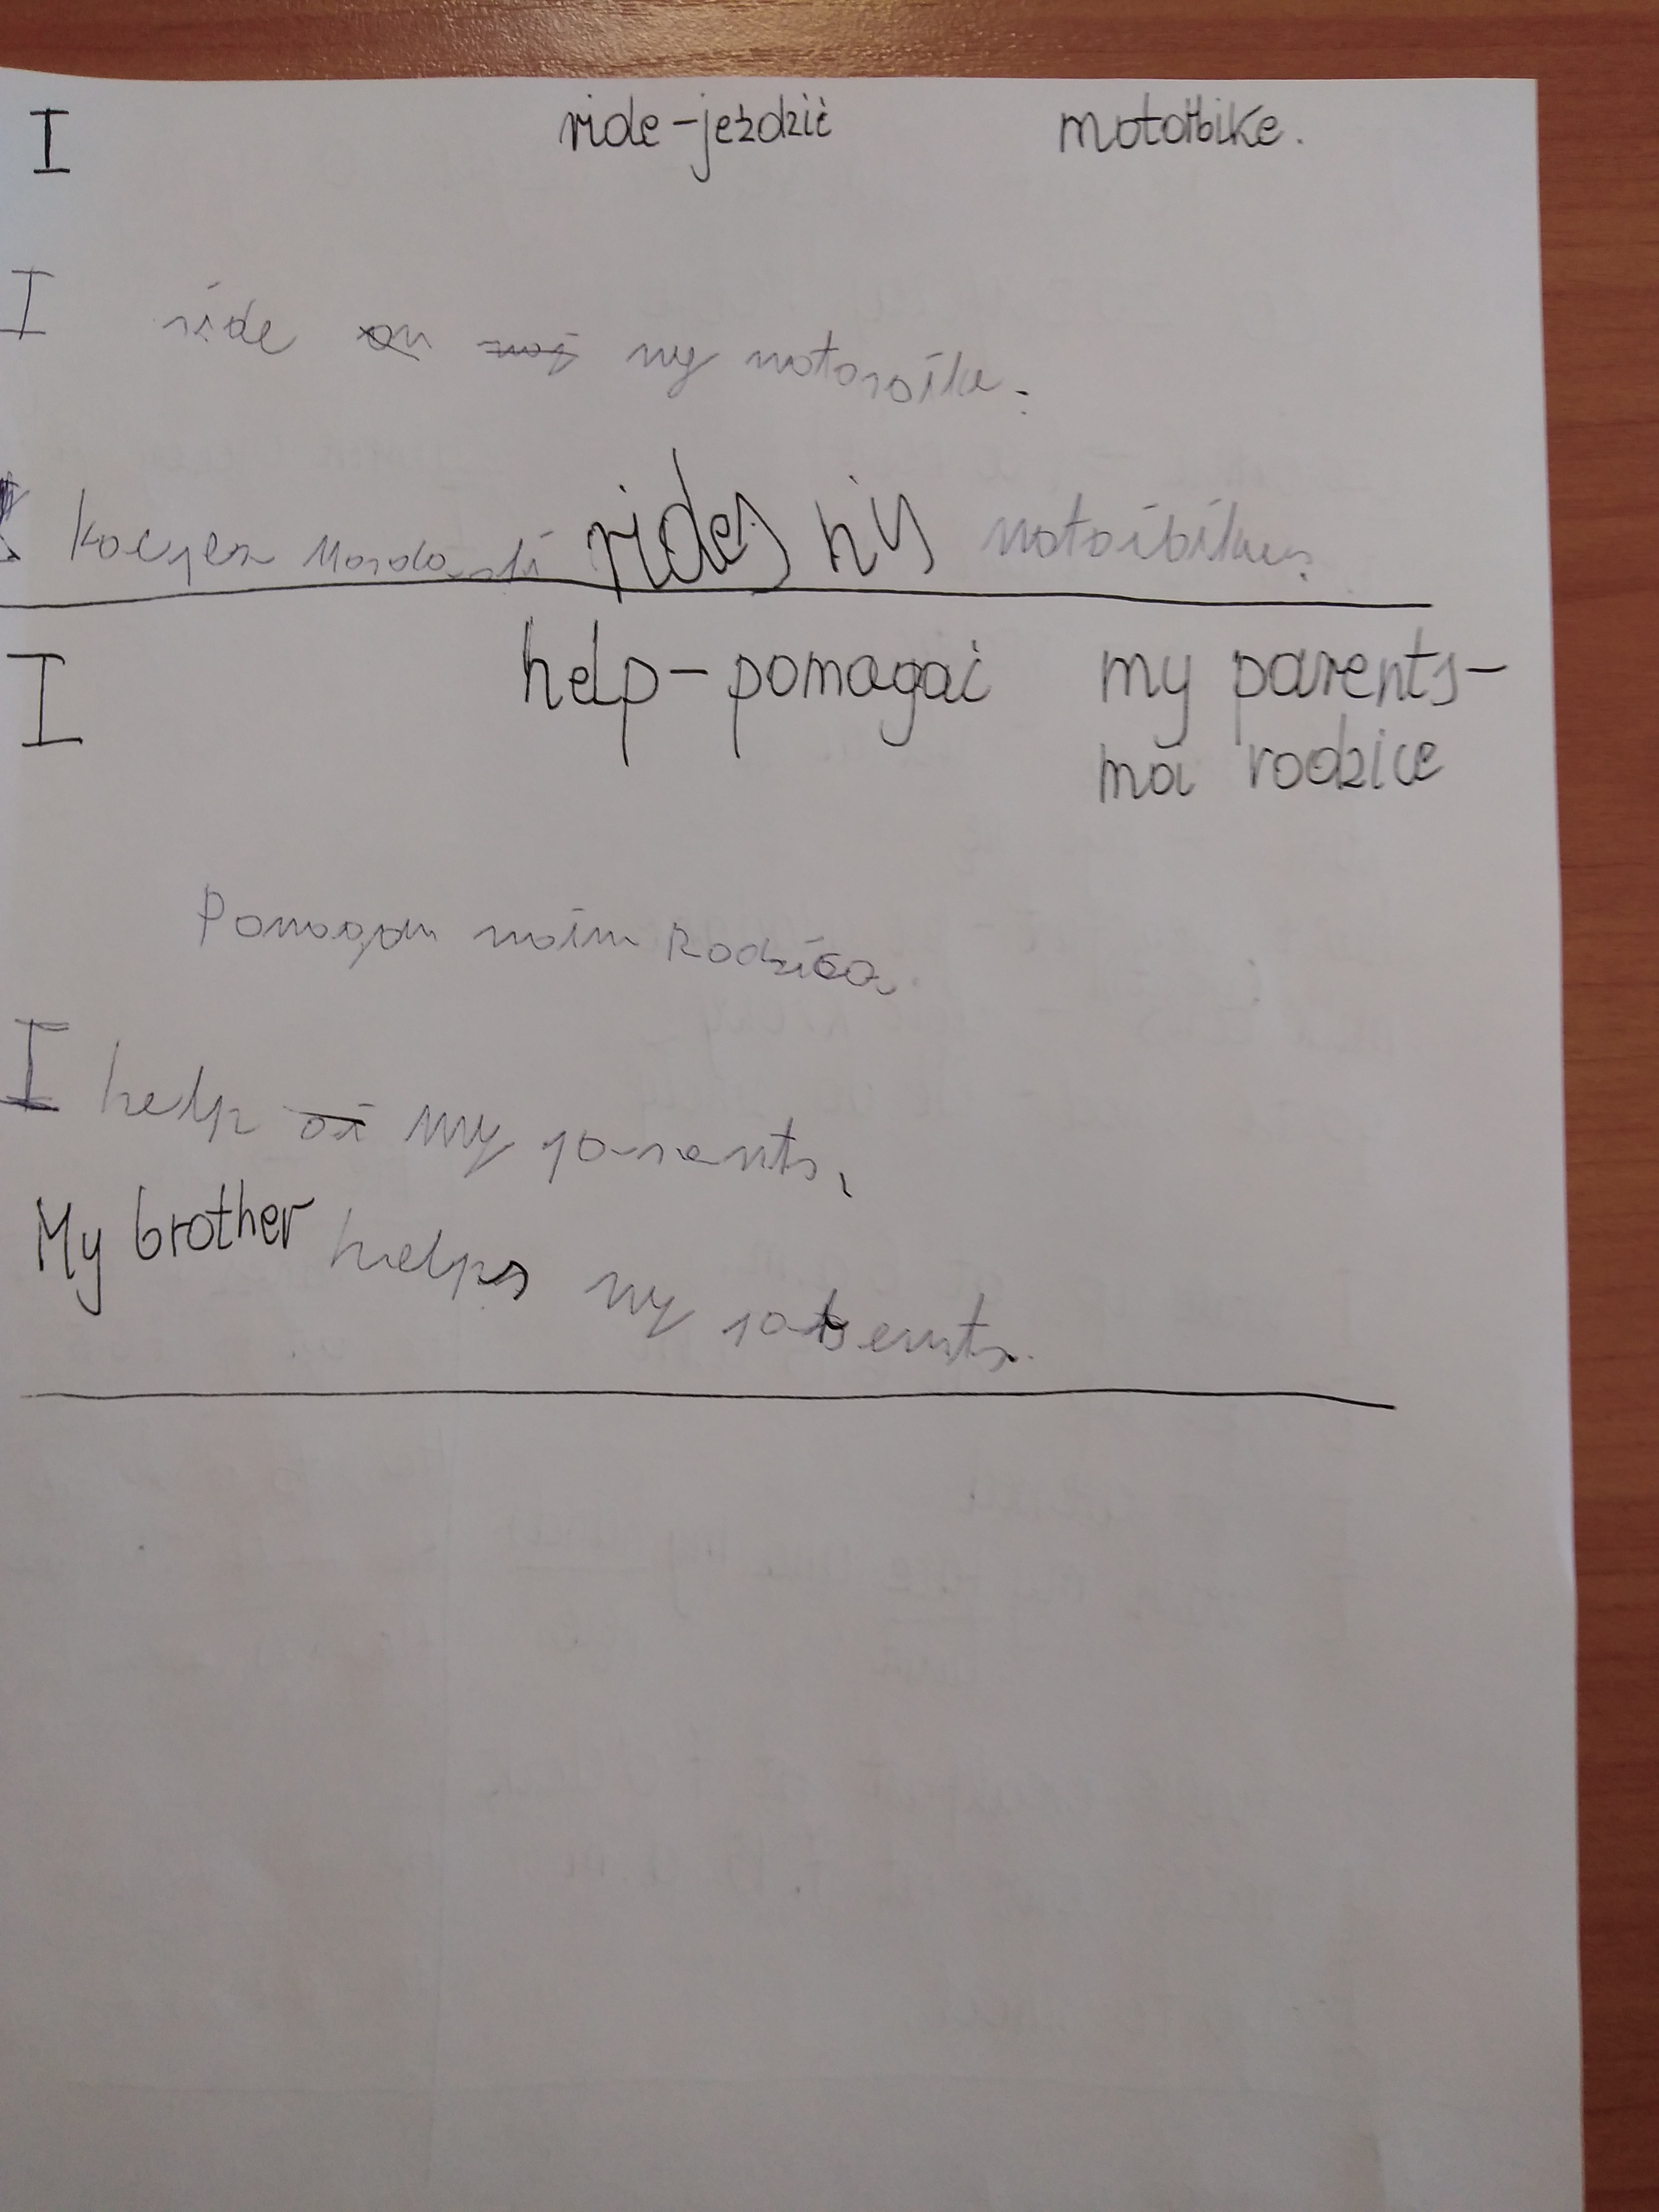 I ride-jeździć motorbike.
I ride my motorbike.
rides his motorbike.
I help-pomagać my parents-
moi rodzice
Pomagam moim Rodzicą.
I help my parents.
My brother helps my parents.